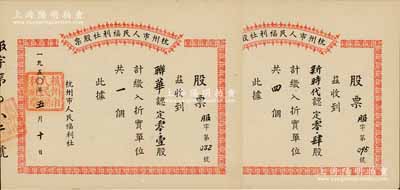 上海陽明拍賣
杭州市人民福利社股票
股票
福字第095號
茲收到
新時代認定零肆股
計繳入折實單位
共四個
此據
杭州市人民福利社股票
股票
福字第032號
茲收到
聯華認定零壹股
計繳入折實單位
共一個
此據
杭州市人民福利社
一九五〇年五月十日